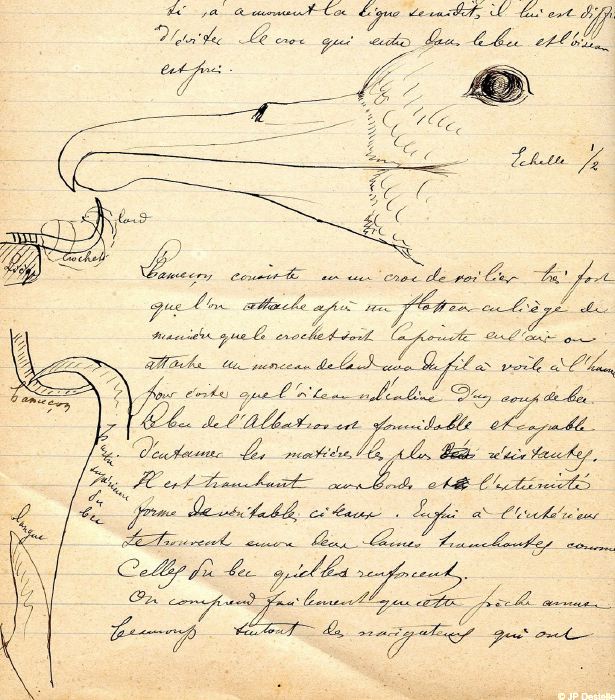 ti, à a moment la ligne se raidit, il lui est diffi
d'éviter le croc qui entre dans le bec et l'oiseau
est pris.
Echelle 1/2
lard
crochet
L'hameçon consiste en un croc de voilier très fort
que l'on attache après un flotteur en liège de
manière que le crochet soit la pointe en l'air on
attache un morceau de lard avec du fil à voile à l'hame
pour éviter que l'oiseau d'un coup de bec.
Le bec de l'Albatros est formidable et capable
d'entamer les matières les plus résistantes.
Il est tranchant aux bords et à l'extrémité
forme de véritables ciseaux. Enfin à l'intérieur
se trouvent encore deux lames tranchantes comme
celles du bec qu'elles renforcent.
On comprend facilement que cette pêche amuse
beaucoup surtout des navigateurs qui ont
hameçon
partie
supérieure
du
bec
langue
© JP Destelle